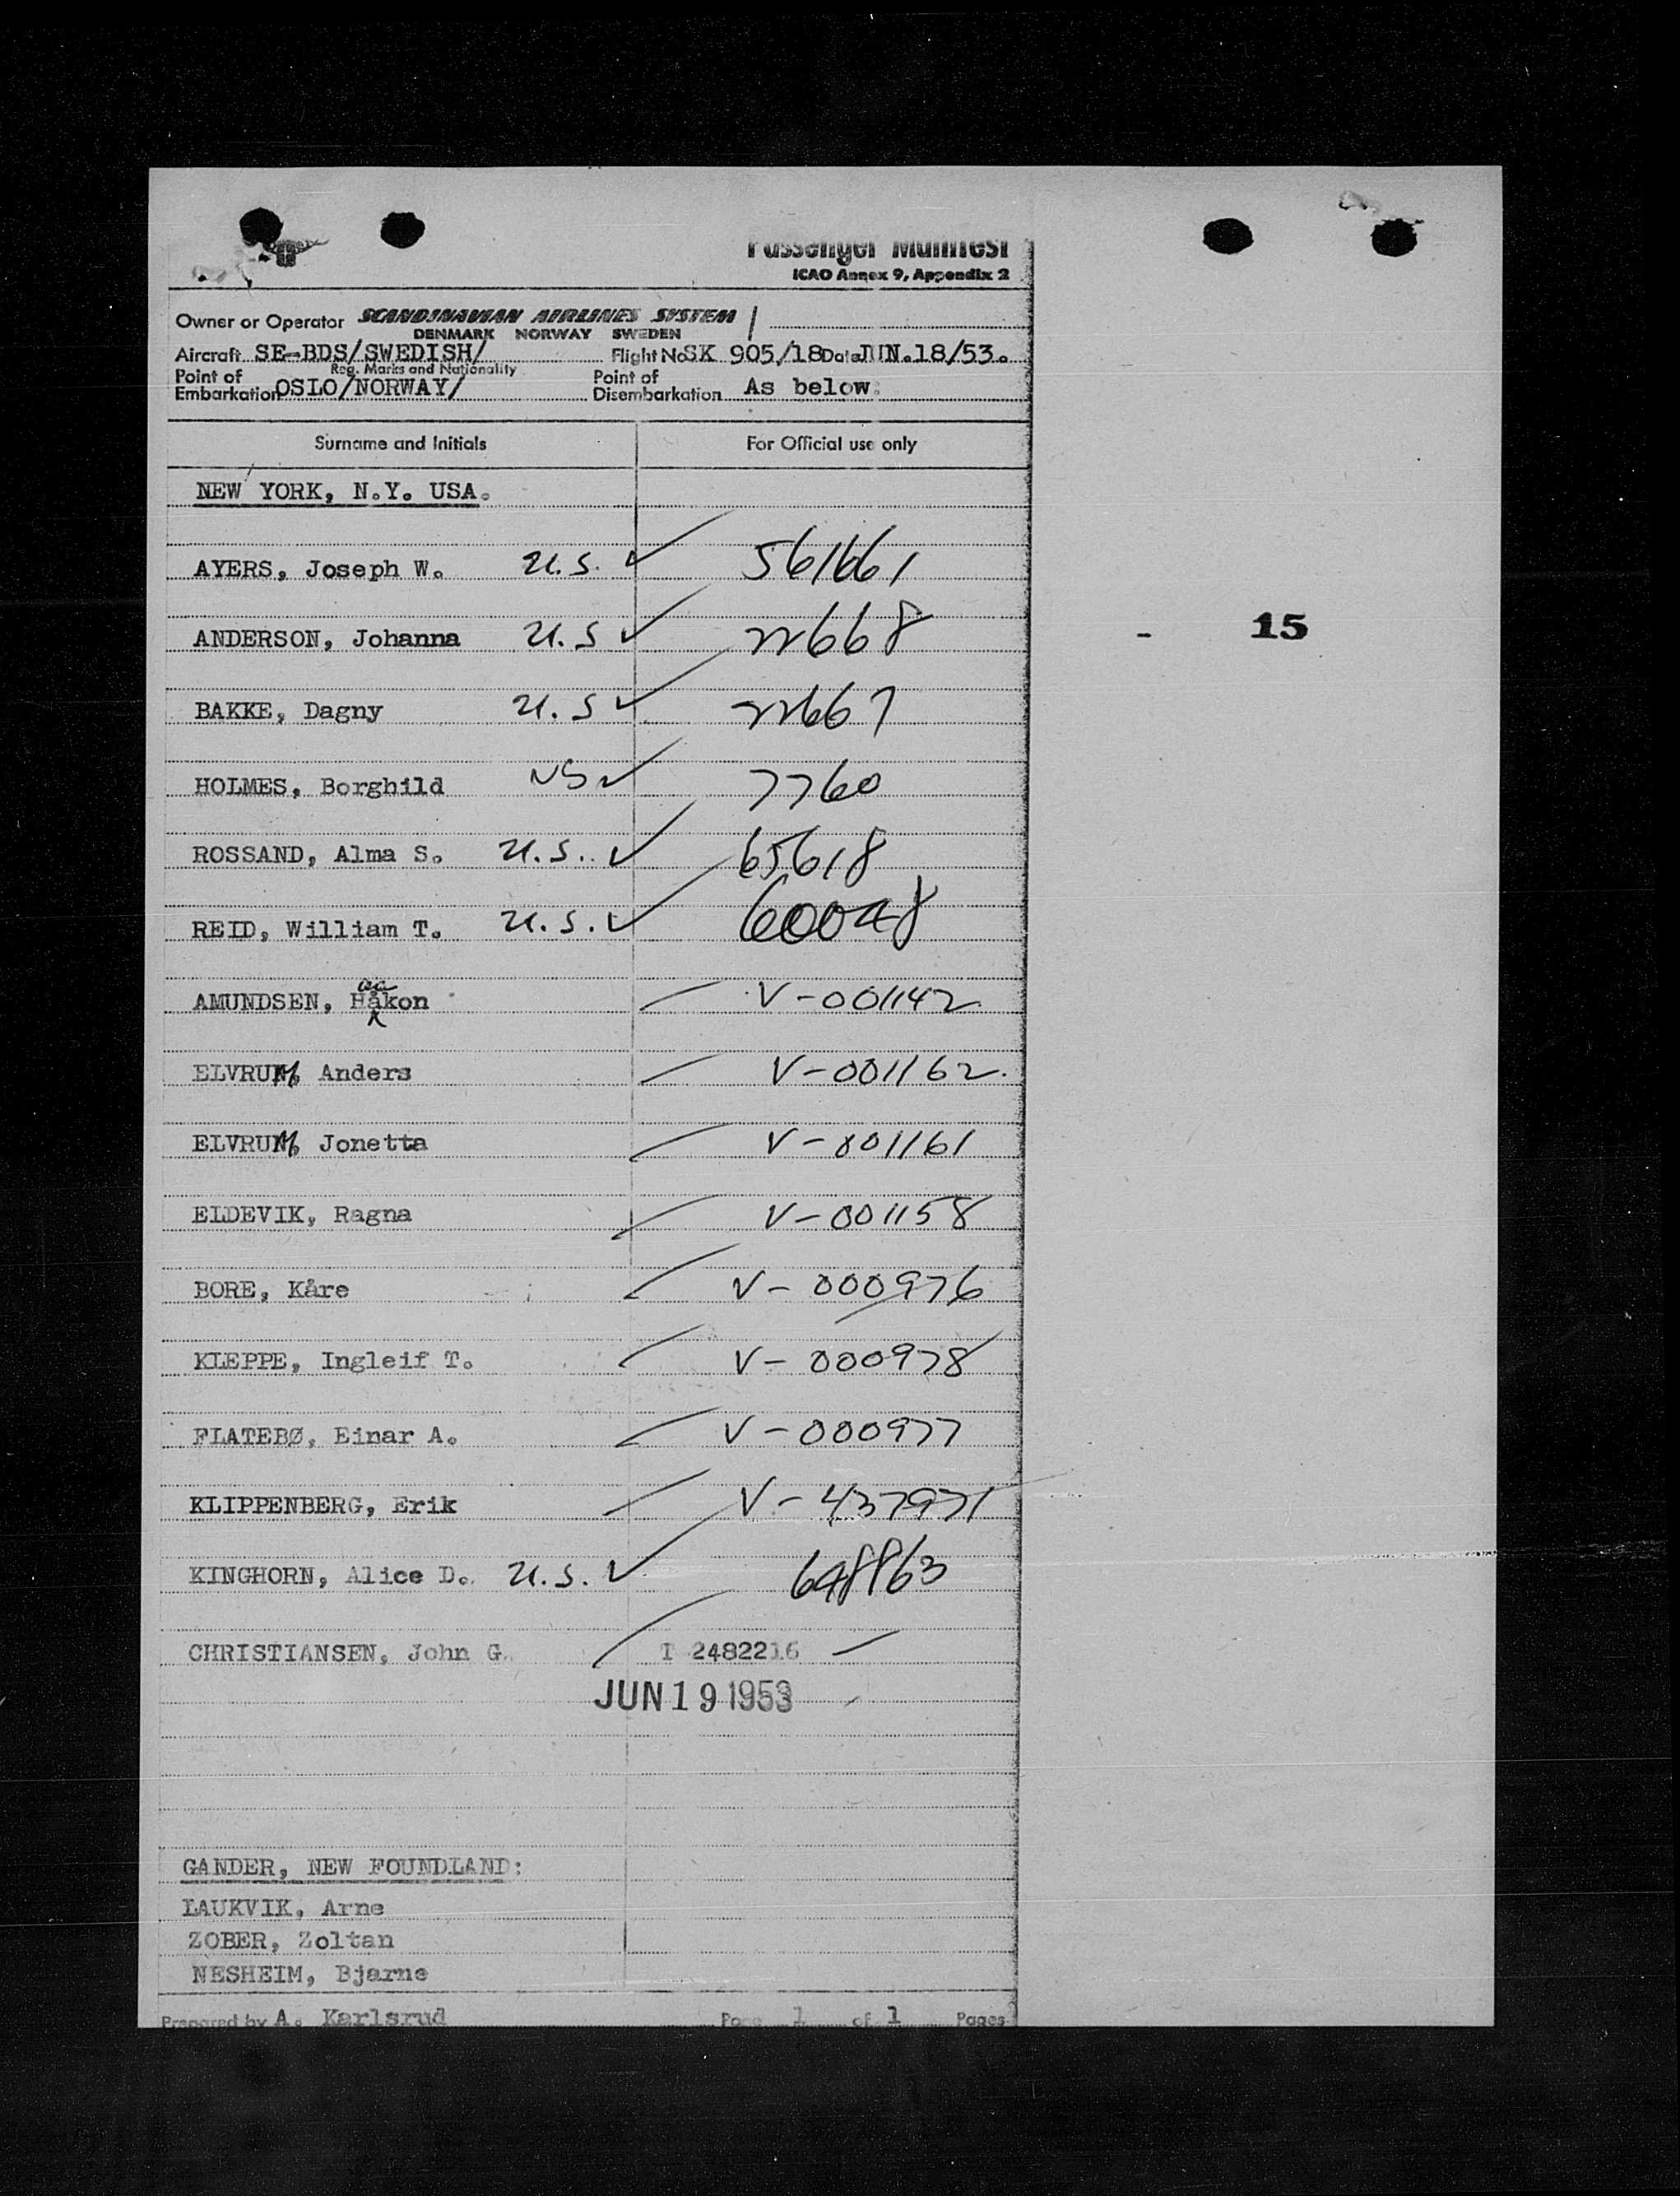 Passenger Manifest
ICAO Annex 9, Appendix 2
Owner or Operator SCANDINAVIAN AIRLINES SYSTEM
DENMARK NORWAY SWEDEN
Aircraft SE-BDS/SWEDISH/ Flight No SK 905/18 Date JUN.18/53.
Reg. Marks and Nationality
Point of Embarkation OSLO/NORWAY/ Point of Disembarkation As below.
Surname and Initials For Official use only
NEW YORK, N.Y. USA.
AYERS, Joseph W. U.S. ✓ 561661
ANDERSON, Johanna U.S ✓ 22668
15
BAKKE, Dagny U.S ✓ 22667
HOLMES, Borghild US ✓ 7760
ROSSAND, Alma S. U.S. ✓ 65618
REID, William T. U.S. ✓ 60048
AMUNDSEN, Håkon aa V-001142
ELVRUM, Anders V-001162.
ELVRUM, Jonetta V-001161
ELDEVIK, Ragna V-001158
BORE, Kåre V-000976
KLEPPE, Ingleif T. V-000978
FLATEBØ, Einar A. V-000977
KLIPPENBERG, Erik V-437971
KINGHORN, Alice D. U.S. ✓ 648863
CHRISTIANSEN, John G. T 2482216
JUN 19 1953
GANDER, NEW FOUNDLAND:
LAUKVIK, Arne
ZOBER, Zoltan
NESHEIM, Bjarne
Prepared by A. Karlsrud Page 1 of 1 Pages